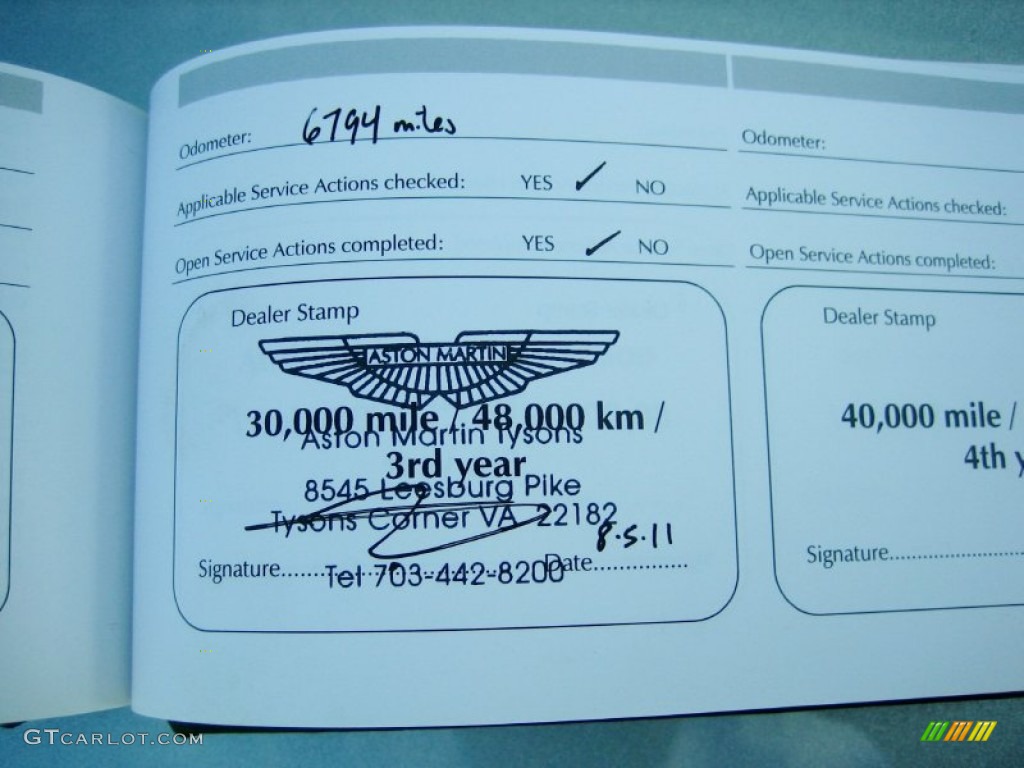 6794 miles
Odometer:
Applicable Service Actions checked: YES ✓ NO
Open Service Actions completed: YES ✓ NO
Dealer Stamp
ASTON MARTIN
30,000 mile / 48,000 km /
Aston Martin Tysons
3rd year
8545 Leesburg Pike
Tysons Corner VA 22182
8.5.11
Signature.......... Date...............
Tel 703-442-8200
Odometer:
Applicable Service Actions checked:
Open Service Actions completed:
Dealer Stamp
40,000 mile /
4th y
Signature..........................
GTCARLOT.COM